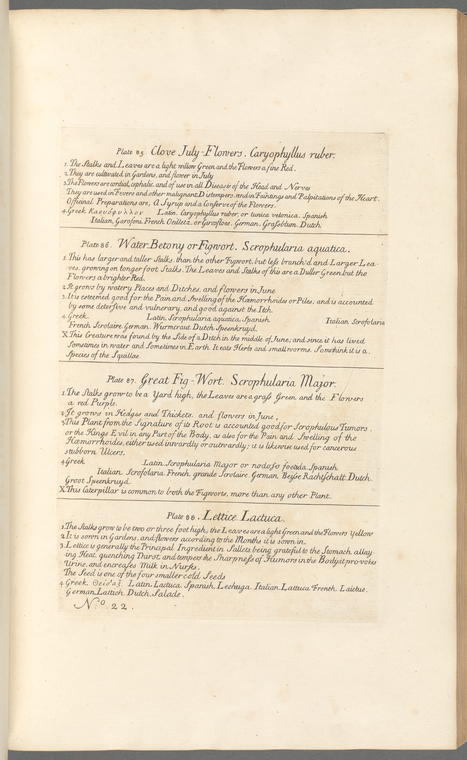 Plate 85. Clove July-Flowers. Caryophyllus ruber.
1. The Stalks and Leaves are a light willow Green and the Flowers a fine Red.
2. They are cultivated in Gardens, and flower in July
3. The Flowers are cordial, cephalic, and of use in all Diseases of the Head and Nerves
They are used in Fevers and other malignant Distempers, and in Faintings and Palpitations of the Heart.
Officinal Preparations are, A Syrup and a Conserve of the Flowers.
4. Greek Latin. Caryophyllus ruber, or tunica vetonica. Spanish
Italian, Garofoni. French. Oeillets, or Giroflees. German. Dutch.
Plate 86. Water-Betony or Figwort. Scrophularia aquatica.
1. This has larger and taller Stalks, than the other Figwort, but less branch'd and Larger Lea-
ves, growing on longer foot Stalks. The Leaves and Stalks of this are a Duller Green, but the
Flowers a brighter Red.
2. It grows by watery Places and Ditches, and flowers in June
3. It is esteemed good for the Pain and Swelling of the Hæmorrhoides or Piles; and is accounted
by some detersive and vulnerary, and good against the Itch.
4. Greek. Latin. Scrophularia aquatica, Spanish. Italian Scrofolaria
French. Scrolaire. German. Wurmcraut. Dutch. Speenkruyd.
X This Creature was found by the Side of a Ditch in the middle of June; and since it has lived
Sometimes in water and Sometimes in Earth. It eats Herbs and small worms. Some think it is a
Species of the Squillae.
Plate 87. Great Fig-Wort. Scrophularia Major.
1. The Stalks grow to be a Yard high, the Leaves are a grass Green and the Flowers
a red Purple.
2. It grows in Hedges and Thickets, and flowers in June.
3. This Plant from the Signature of its Root is accounted good for Scrophulous Tumors,
or the Kings Evil in any Part of the Body, as also for the Pain and Swelling of the
Hæmorrhoides, either used inwardly or outwardly; it is likewise used for cancerous
stubborn Ulcers.
4. Greek Latin. Scrophularia Major or nodosa foetida. Spanish
Italian. Scrofolaria. French. grande Scrolaire. German. Dutch.
Groot Speenkruyd.
X This Caterpillar is common to both the Figworts, more than any other Plant.
Plate 88. Lettice Lactuca.
1. The Stalks grow to be two or three foot high, the Leaves are a light Green and the Flowers Yellow
2. It is sown in Gardens, and flowers according to the Months it is sown in.
3. Lettice is generally the Principal Ingredient in Sallets being grateful to the Stomach, allay-
ing Heat, quenching Thirst, and tempers the Sharpness of Humors in the Body; it provokes
Urine, and encreases Milk in Nurses.
The Seed is one of the four smaller cold Seeds
4. Greek. Latin. Lactuca. Spanish. Lechuga. Italian. Lattuca. French. Laictue.
German. Lattich. Dutch. Salade.
No. 22.